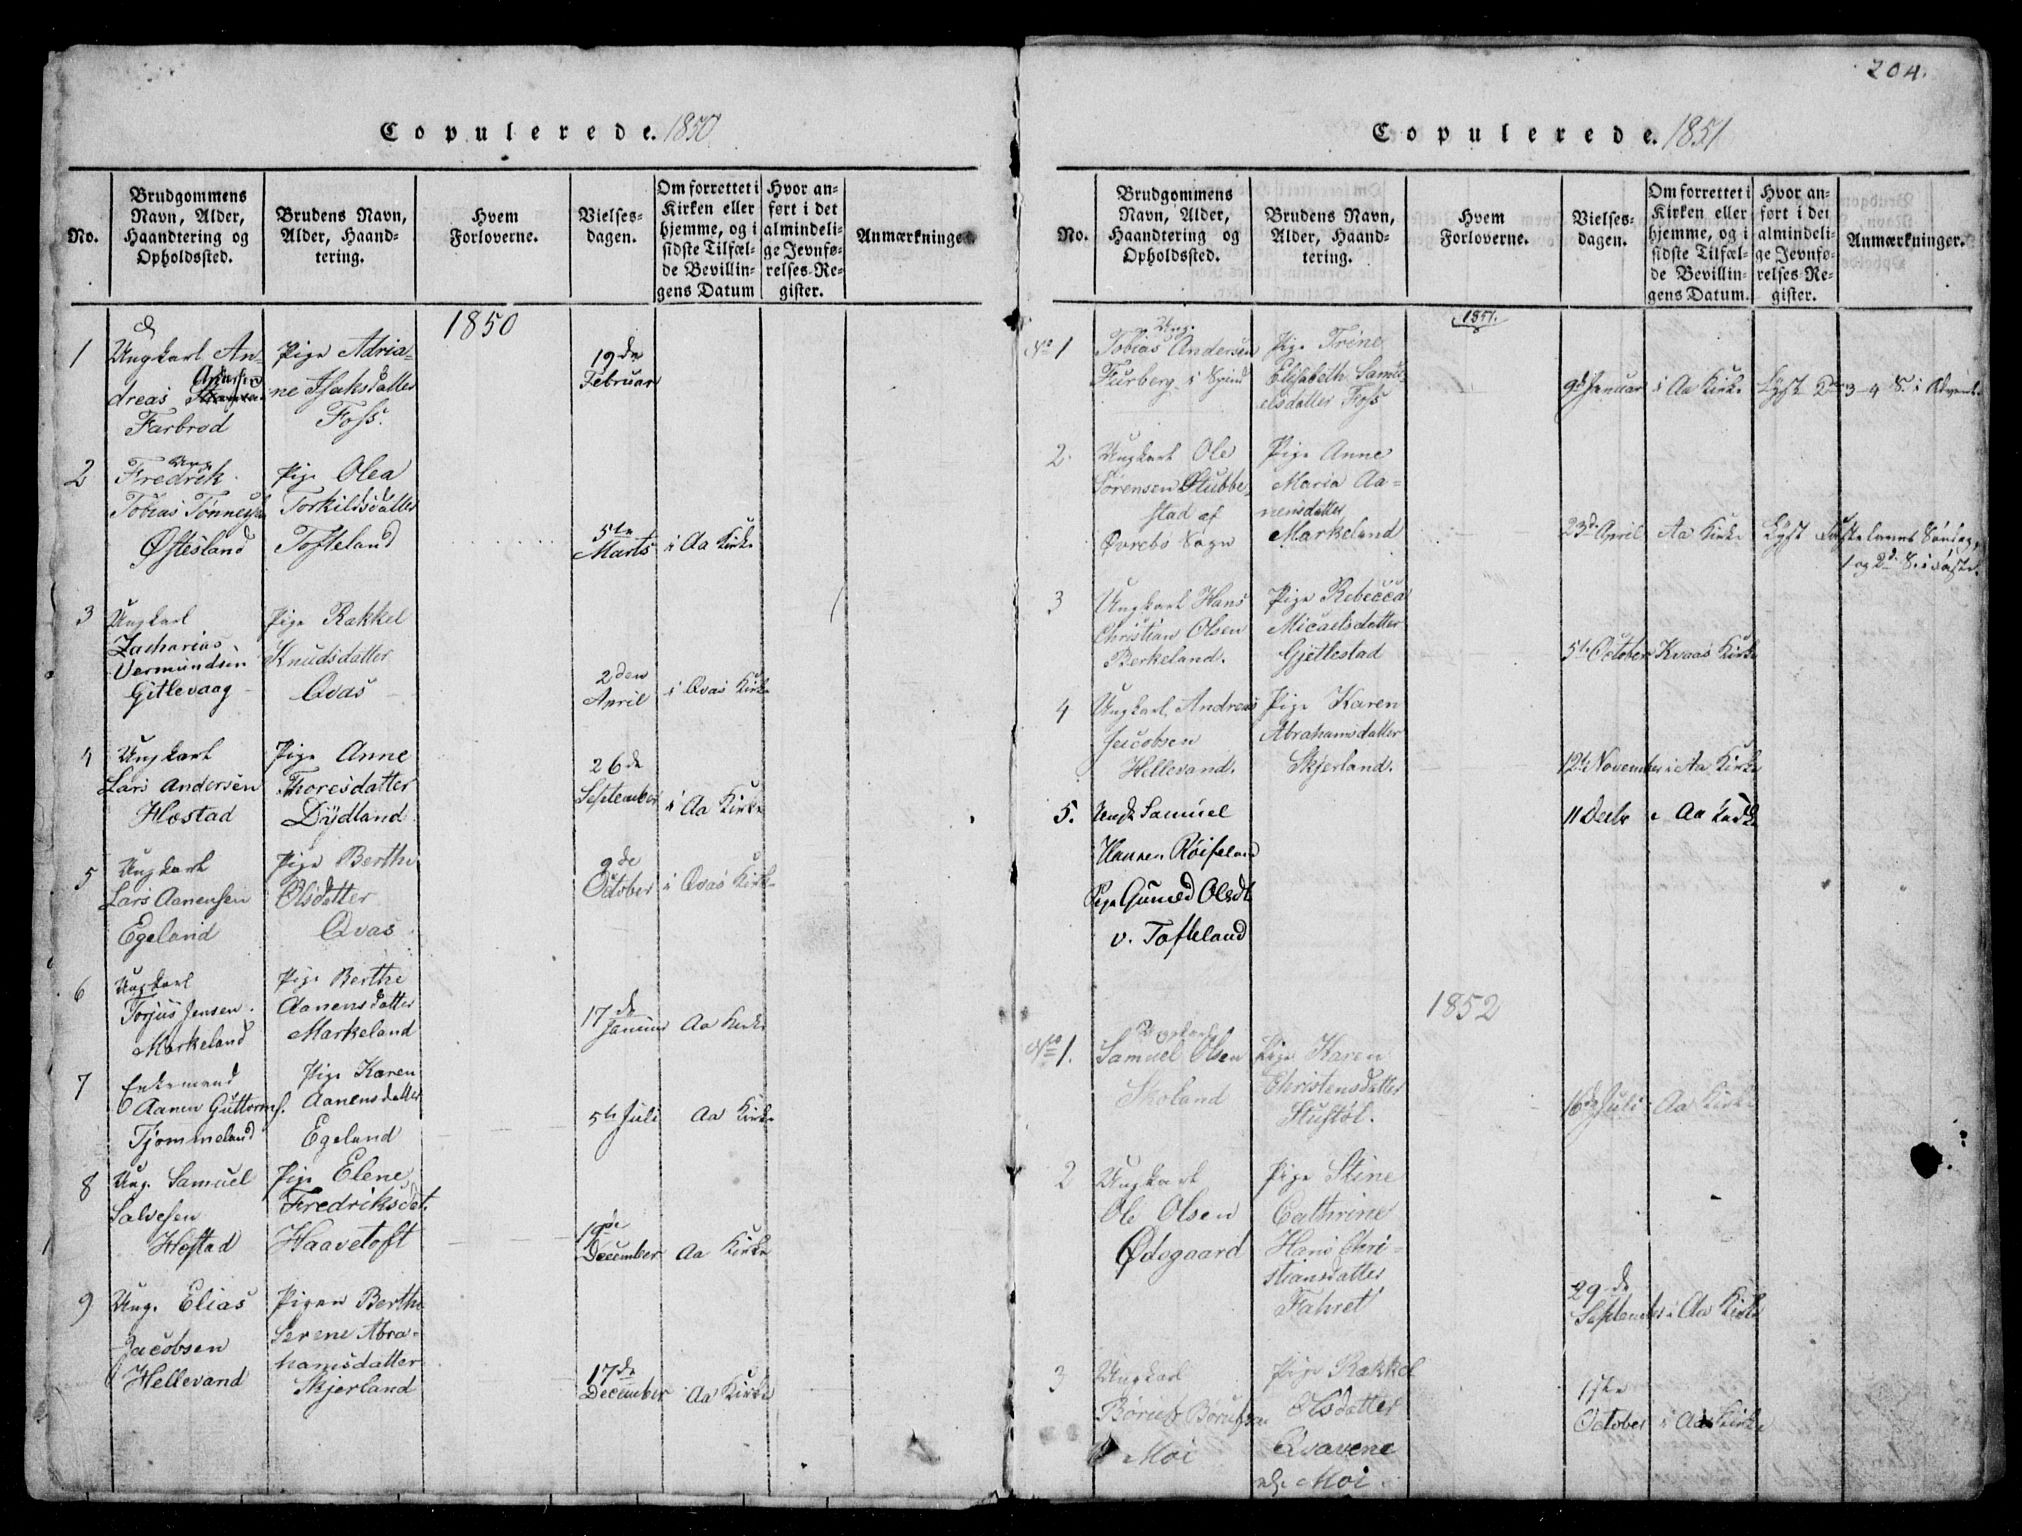 Copulerede. 1850
No.
Brudgommens
Navn, Alder,
Haandtering og
Opholdssted.
Brudens Navn,
Alder, Haand-
tering.
Hvem
Forloverne.
Vielses-
dagen.
Om forrettet i
Kirken eller
hjemme, og i
sidste Tilfæl-
de Bevillin-
gens Datum
Hvor an-
ført i det
almindeli-
ge Jevnfø-
relses-Re-
gister.
Anmærkninge
1850
1
Ungkarl An-
dreas
Farbrod
Pige Adria-
ne Isaksdatter
Foss.
19de
Februar
2
Ung.
Fredrik
Tobias Tønnessen
Øftesland
Pige Olea
Torkildsdatter
Tofteland
5te
Marts
i Aa Kirke
3
Ungkarl
Zacharias
Vermundsen
Gitlevaag
Pige Rakkel
Knudsdatter
Qvas
2den
April
i Qvas Kirke
4
Ungkarl
Lars Andersen
Høstad
Pige Anne
Thoresdatter
Dydland
26de
September
i Aa Kirke
5
Ungkarl
Lars Aanensen
Egeland
Pige Berthe
Olsdatter
Qvas
9de
October
i Qvas Kirke
6
Ungkarl
Torjus Jensen
Markeland
Pige Berthe
Aanensdatter
Markeland
17de
Januar
Aa Kirke
7
Enkemand
Aanen Guttorms.
Tjommeland
Pige Karen
Aanensdatter
Egeland
5te Juli
Aa Kirke
8
Ung. Samuel
Salvesen
Høstad
Pige Elene
Fredriksdat.
Haavetoft
19de
December
Aa Kirke
9
Ung. Elias
Jacobsen
Hellevand
Pigen Berthe
Serene Abra-
hamsdatter
Skjerland
17de
December
Aa Kirke
204.
Copulerede. 1851
No.
Brudgommens
Navn, Alder,
Haandtering og
Opholdssted.
Brudens Navn,
Alder, Haand-
tering.
Hvem
Forloverne.
Vielses-
dagen.
Om forrettet i
Kirken eller
hjemme, og i
sidste Tilfæl-
de Bevillin-
gens Datum.
Hvor an-
ført i det
almindeli-
ge Jevnfø-
relses-Re-
gister.
Anmærkninger.
1851.
No 1
Ung.
Tobias Andersen
Furberg i Spind
Pige Trine
Elisabeth Samu-
elsdatter Foss
9d Januar
i Aa Kirke
Lyst 2- 3-4 S. i Advent.
2.
Ungkarl Ole
Sørensen Stubbe-
stad af
Øvrebø Sogn
Pige Anne
Maria Aa-
nensdatter
Markeland
23d April
Aa Kirke
Lyst Fastelavns Søndag,
1 og 2d S. i Faste.
3
Ungkarl Hans
Christian Olsen
Berkeland.
Pige Rebecca
Micaelsdatter
Gjetlestad
5te October
Kvaas Kirke
4
Ungkarl Andreas
Jacobsen
Hellevand.
Pige Karen
Abrahamsdatter
Skjerland.
12te November
i Aa Kirke
5.
Ungk Samuel
Hansen Røiseland
Pige Guned Olsdt
v. Tofteland
11 Decbr
i Aa Kirke
1852
No 1.
Ungkarl
Samuel Olsen
Skoland
Pige Karen
Christensdatter
Stustøl.
16de Juli
Aa Kirke
2
Ungkarl
Ole Olsen
Ødegaard
Pige Stine
Cathrine
Hans Chri-
stiansdatter
Fahret
29de
September
i Aa Kirke
3
Ungkarl
Børu Børuf
Moi
Pige Rakkel
Olsdatter
Qvavene
Moi
1ste
October
i Aa Kirke